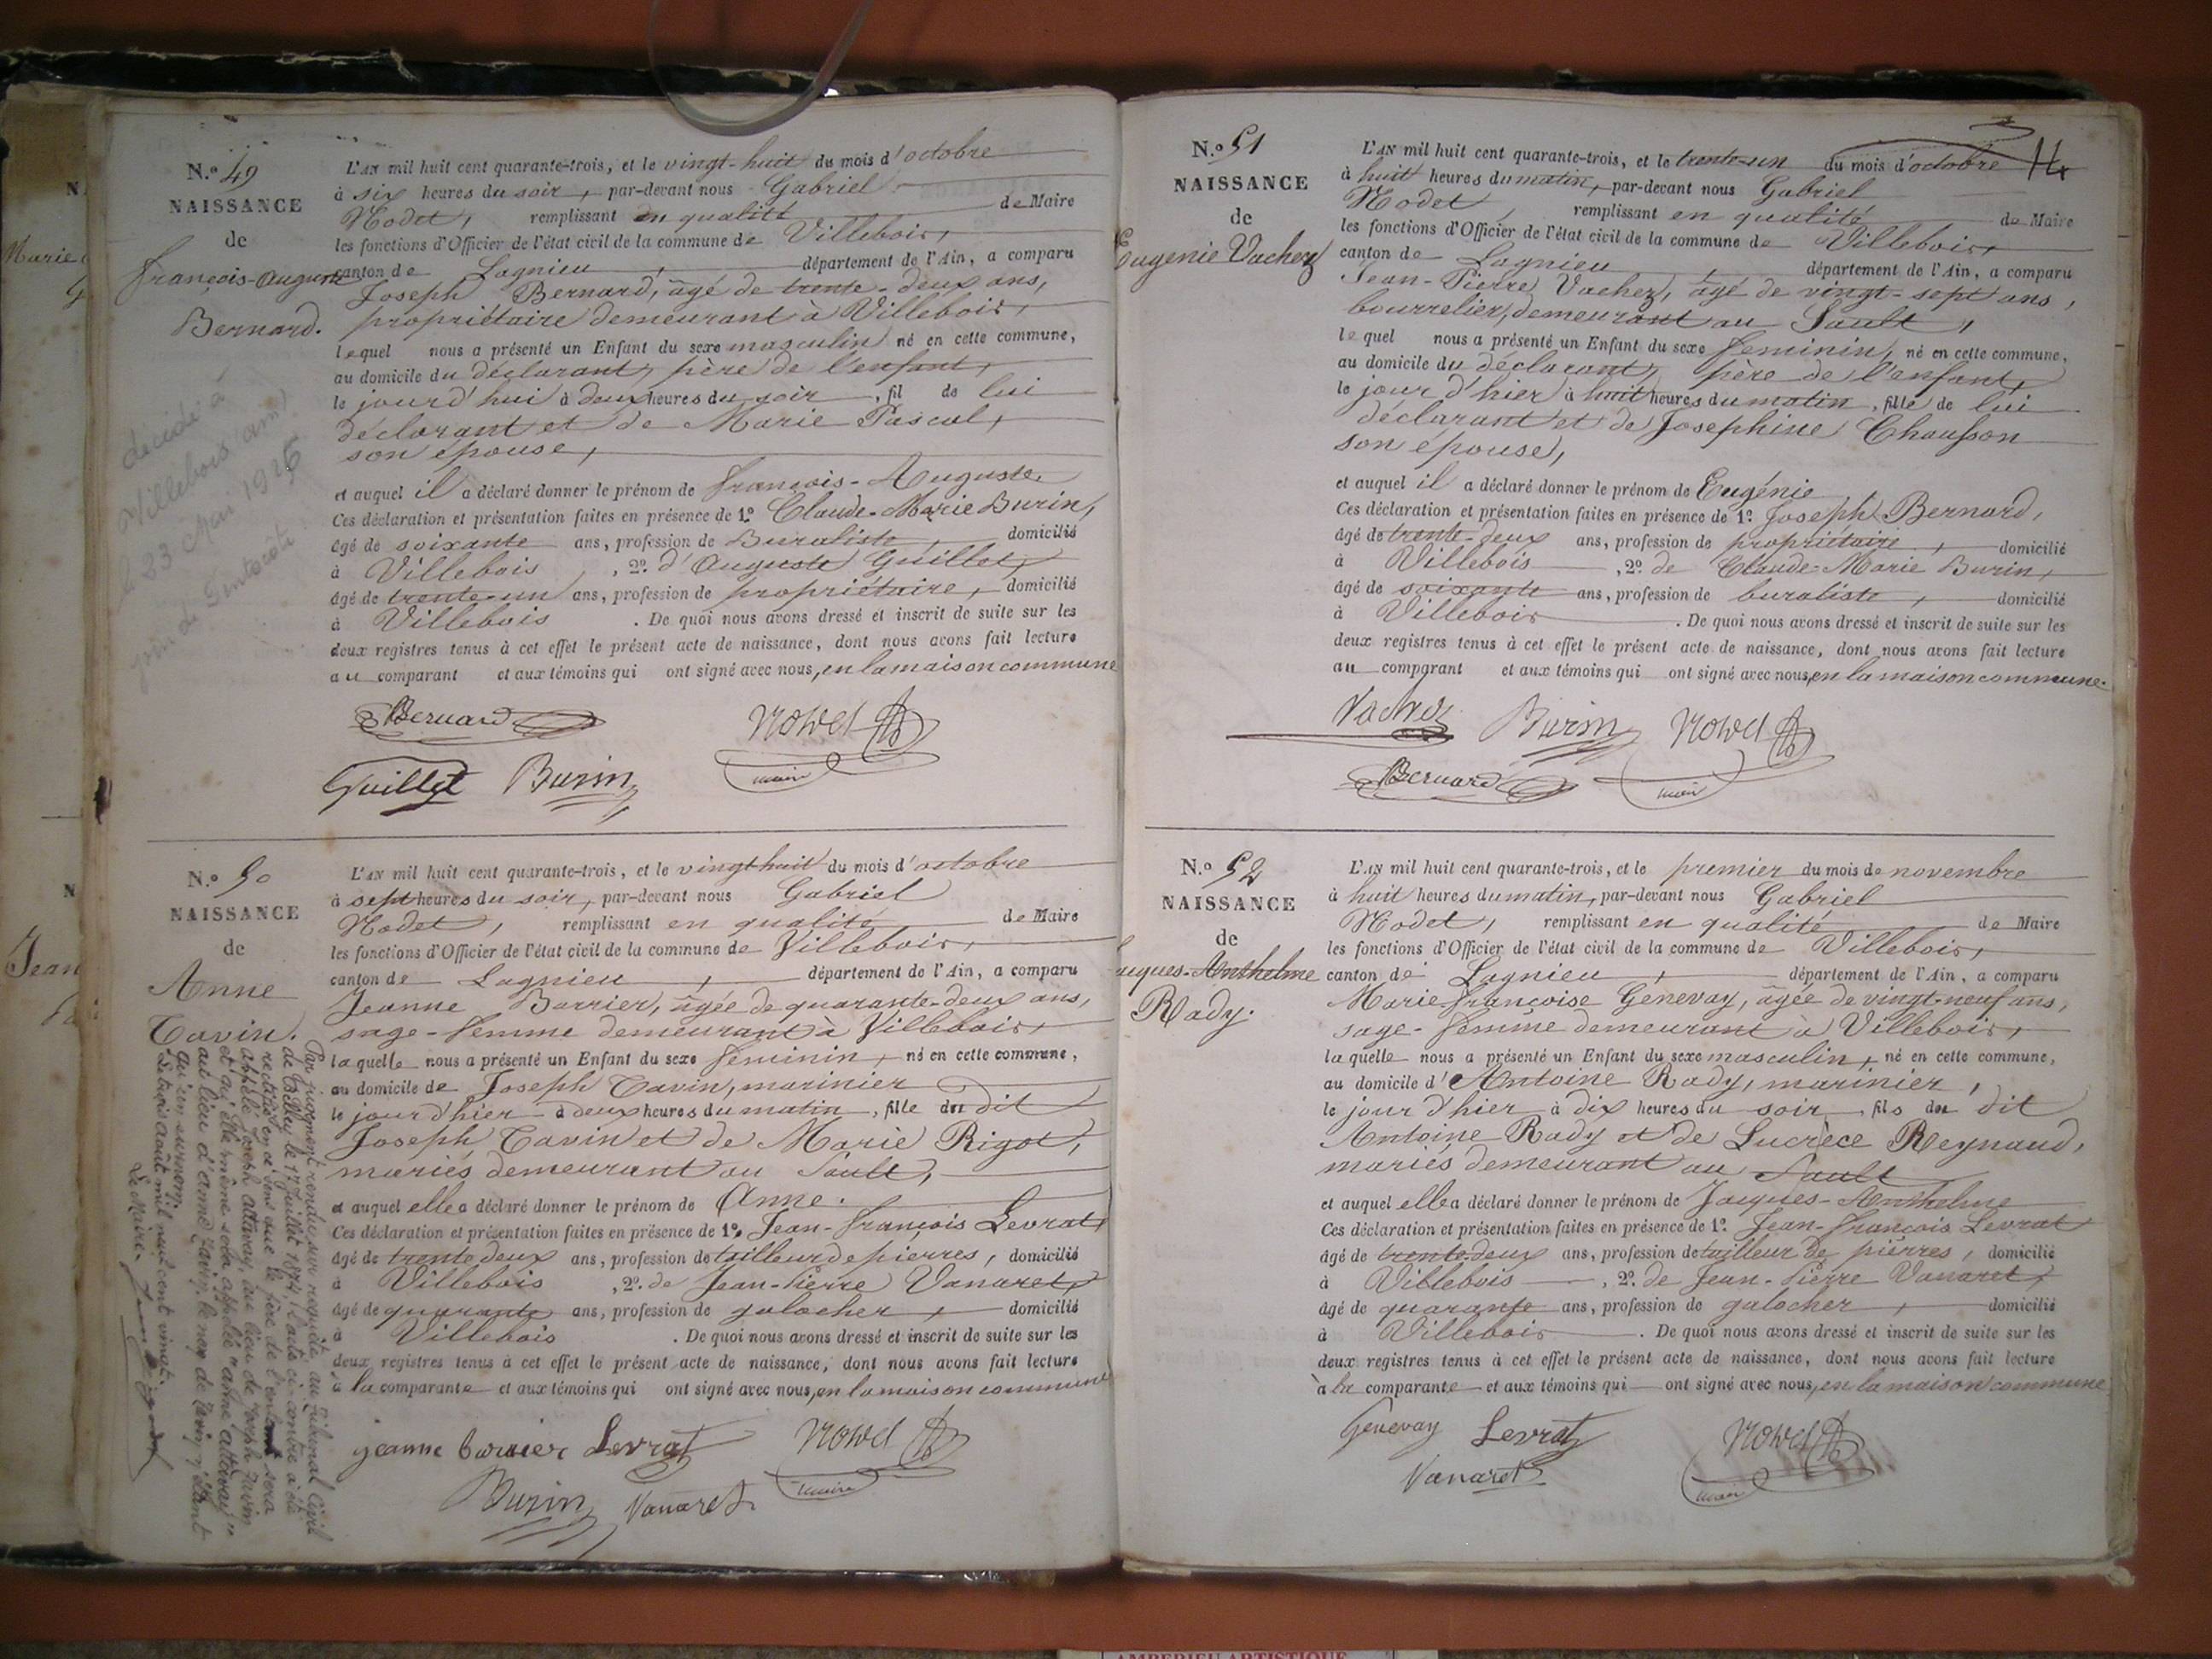 N.º 49
NAISSANCE
de
François-Auguste
Bernard.
décédé à
Villebois (Ain)
le 23 Mai 1926
L'AN mil huit cent quarante-trois, et le vingt-huit du mois d'octobre
à six heures du soir, par-devant nous Gabriel
Nodet, remplissant en qualité de Maire
les fonctions d'Officier de l'état civil de la commune de Villebois,
canton de Lagnieu, département de l'Ain, a comparu
Joseph Bernard, âgé de trente-deux ans,
propriétaire demeurant à Villebois,
lequel nous a présenté un Enfant du sexe masculin né en cette commune,
au domicile du déclarant, père de l'enfant,
le jourd'hui à deux heures du soir, fil de lui
déclarant et de Marie Pascal,
son épouse,
et auquel il a déclaré donner le prénom de François-Auguste.
Ces déclaration et présentation faites en présence de 1º Claude-Marie Burin,
âgé de soixante ans, profession de Buraliste, domicilié
à Villebois, 2º d'Auguste Guillet,
âgé de trente-un ans, profession de propriétaire, domicilié
à Villebois. De quoi nous avons dressé et inscrit de suite sur les
deux registres tenus à cet effet le présent acte de naissance, dont nous avons fait lecture
au comparant et aux témoins qui ont signé avec nous, en la maison commune
Bernard Nodet
Guillet Burin maire
N.º 50
NAISSANCE
de
Anne
Tavin.
L'AN mil huit cent quarante-trois, et le vingt-huit du mois d'octobre
à sept heures du soir, par-devant nous Gabriel
Nodet, remplissant en qualité de Maire
les fonctions d'Officier de l'état civil de la commune de Villebois,
canton de Lagnieu, département de l'Ain, a comparu
Jeanne Barrier, âgée de quarante-deux ans,
sage-femme demeurant à Villebois,
laquelle nous a présenté un Enfant du sexe féminin, né en cette commune,
au domicile de Joseph Tavin, marinier
le jour d'hier à deux heures du matin, fille du dit
Joseph Tavin et de Marie Rigot,
mariés demeurant au Sault,
et auquel elle a déclaré donner le prénom de Anne.
Ces déclaration et présentation faites en présence de 1º Jean-François Levrat,
âgé de trente deux ans, profession de tailleur de pierres, domicilié
à Villebois, 2º de Jean-Pierre Vanaret,
âgé de quarante ans, profession de galocher, domicilié
à Villebois. De quoi nous avons dressé et inscrit de suite sur les
deux registres tenus à cet effet le présent acte de naissance, dont nous avons fait lecture
à la comparante et aux témoins qui ont signé avec nous, en la maison commune
jeanne barrier Levrat Nodet
Burin Vanaret maire
Par jugement rendu sur requête au Tribunal Civil
de Belley le 17 juillet 1874 l'acte ci-contre a été
rectifié en ce sens que le père de l'enfant sera
appelé "Joseph attavay" au lieu de Joseph Tavin
et qu'elle même sera appelée "anne attavay"
au lieu d'anne Tavin, le nom de Tavin n'étant
qu'un surnom.
août mil neuf cent vingt.
Le Maire
N.º 51
NAISSANCE
de
Eugénie Vachez
14
L'AN mil huit cent quarante-trois, et le trente-un du mois d'octobre
à huit heures du matin, par-devant nous Gabriel
Nodet, remplissant en qualité de Maire
les fonctions d'Officier de l'état civil de la commune de Villebois,
canton de Lagnieu, département de l'Ain, a comparu
Jean-Pierre Vachez, âgé de vingt-sept ans,
bourrelier, demeurant au Sault,
lequel nous a présenté un Enfant du sexe féminin, né en cette commune,
au domicile du déclarant, père de l'enfant,
le jour d'hier à huit heures du matin, fille de lui
déclarant et de Josephine Chausson
son épouse,
et auquel il a déclaré donner le prénom de Eugénie
Ces déclaration et présentation faites en présence de 1º Joseph Bernard,
âgé de trente-deux ans, profession de propriétaire, domicilié
à Villebois, 2º de Claude-Marie Burin,
âgé de soixante ans, profession de buraliste, domicilié
à Villebois. De quoi nous avons dressé et inscrit de suite sur les
deux registres tenus à cet effet le présent acte de naissance, dont nous avons fait lecture
au comparant et aux témoins qui ont signé avec nous, en la maison commune.
Vachez Burin Nodet
Bernard maire
N.º 52
NAISSANCE
de
Jacques-Anthelme
Rady.
L'AN mil huit cent quarante-trois, et le premier du mois de novembre
à huit heures du matin, par-devant nous Gabriel
Nodet, remplissant en qualité de Maire
les fonctions d'Officier de l'état civil de la commune de Villebois,
canton de Lagnieu, département de l'Ain, a comparu
Marie-françoise Genevay, âgée de vingt-neuf ans,
sage-femme demeurant à Villebois,
laquelle nous a présenté un Enfant du sexe masculin, né en cette commune,
au domicile d'Antoine Rady, marinier,
le jour d'hier à dix heures du soir, fils du dit
Antoine Rady et de Lucrèce Reynaud,
mariés demeurant au Sault
et auquel elle a déclaré donner le prénom de Jacques-Anthelme
Ces déclaration et présentation faites en présence de 1º Jean-François Levrat
âgé de trente-deux ans, profession de tailleur de pierres, domicilié
à Villebois, 2º de Jean-Pierre Vanaret,
âgé de quarante ans, profession de galocher, domicilié
à Villebois. De quoi nous avons dressé et inscrit de suite sur les
deux registres tenus à cet effet le présent acte de naissance, dont nous avons fait lecture
à la comparante et aux témoins qui ont signé avec nous, en la maison commune
Genevay Levrat Nodet
Vanaret maire